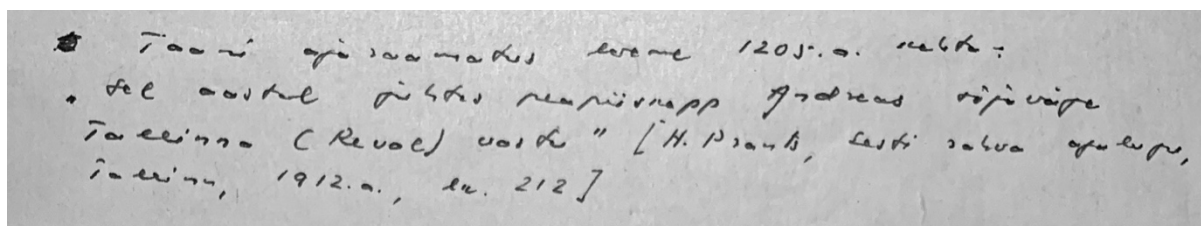 Taani ajaraamatus loeme 1205.a. kohta:
„Sel aastal juhtis peapiiskopp Andreas sõjaväge
Tallinna (Reval) vastu" [H. Prants, Eesti rahva ajalugu,
Tallinn, 1912.a., lk. 212]